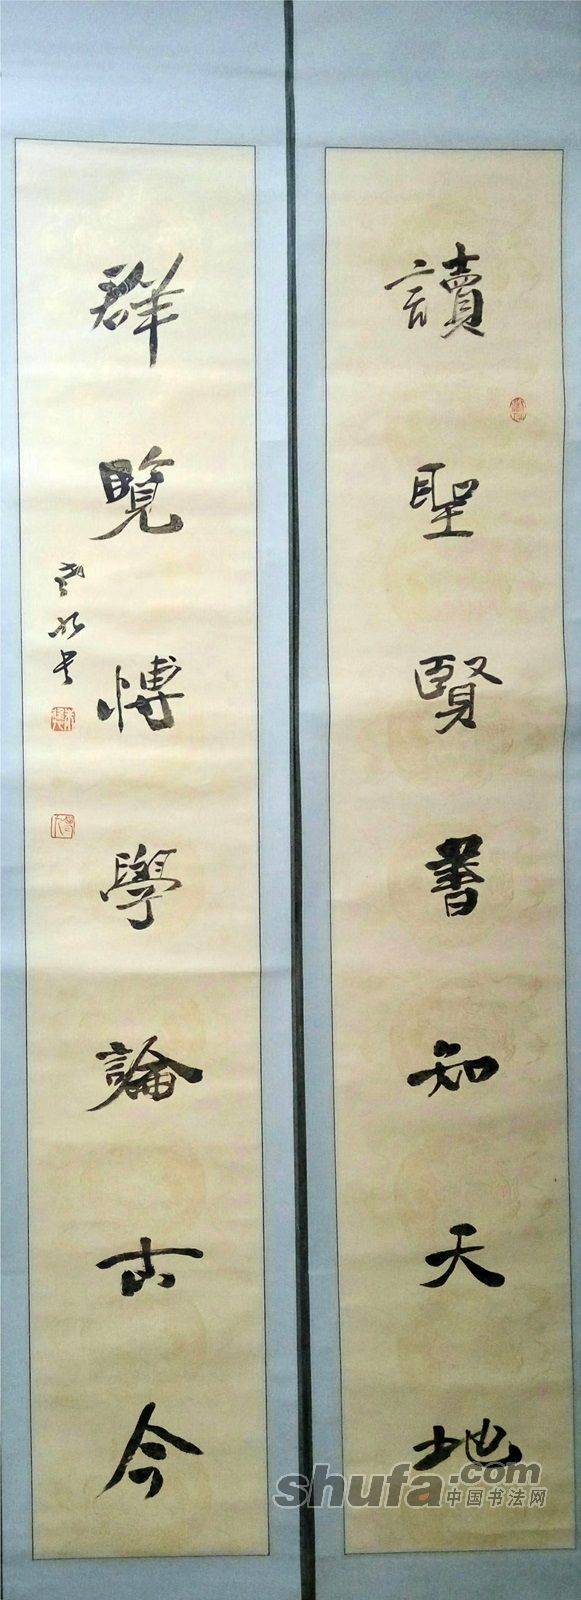 讀聖賢書知天地
群覽博學論古今
shufa.com
中国书法网